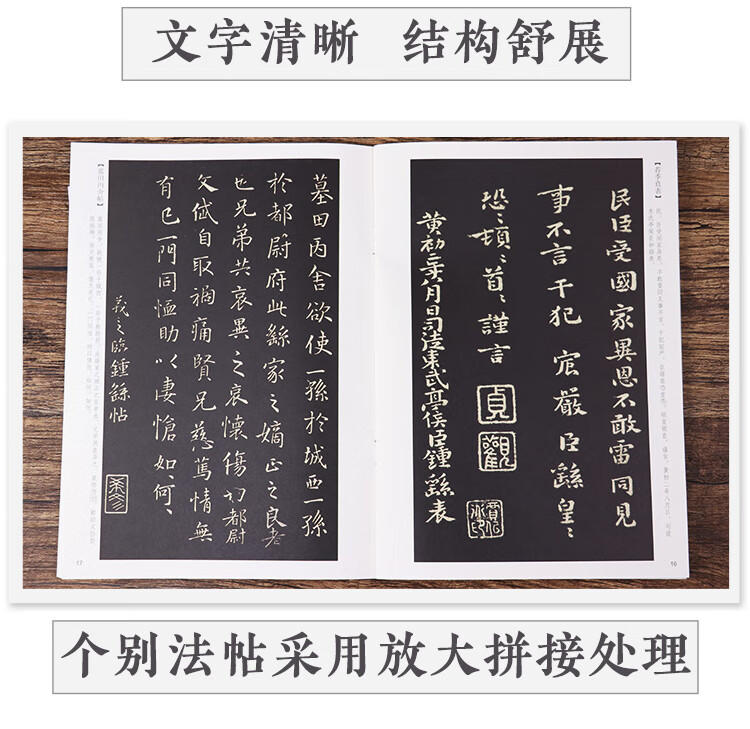 文字清晰 结构舒展
【荐季直表】
民臣受國家異恩不敢雷同見
事不言干犯宸嚴臣繇皇〻
恐〻頓〻首〻謹言
黄初二年八月日司徒東武亭侯臣鍾繇表
貞觀
16
墓田丙舍欲使一孫於城西一孫
於都尉府此繇家之嫡正之良者
也兄弟共哀異之哀懷傷切都尉
文俶自取禍痛賢兄慈篤情無
有已一門同恤助以悽愴如何〻
羲之臨鍾繇帖
【墓田丙舍帖】
17
个别法帖采用放大拼接处理